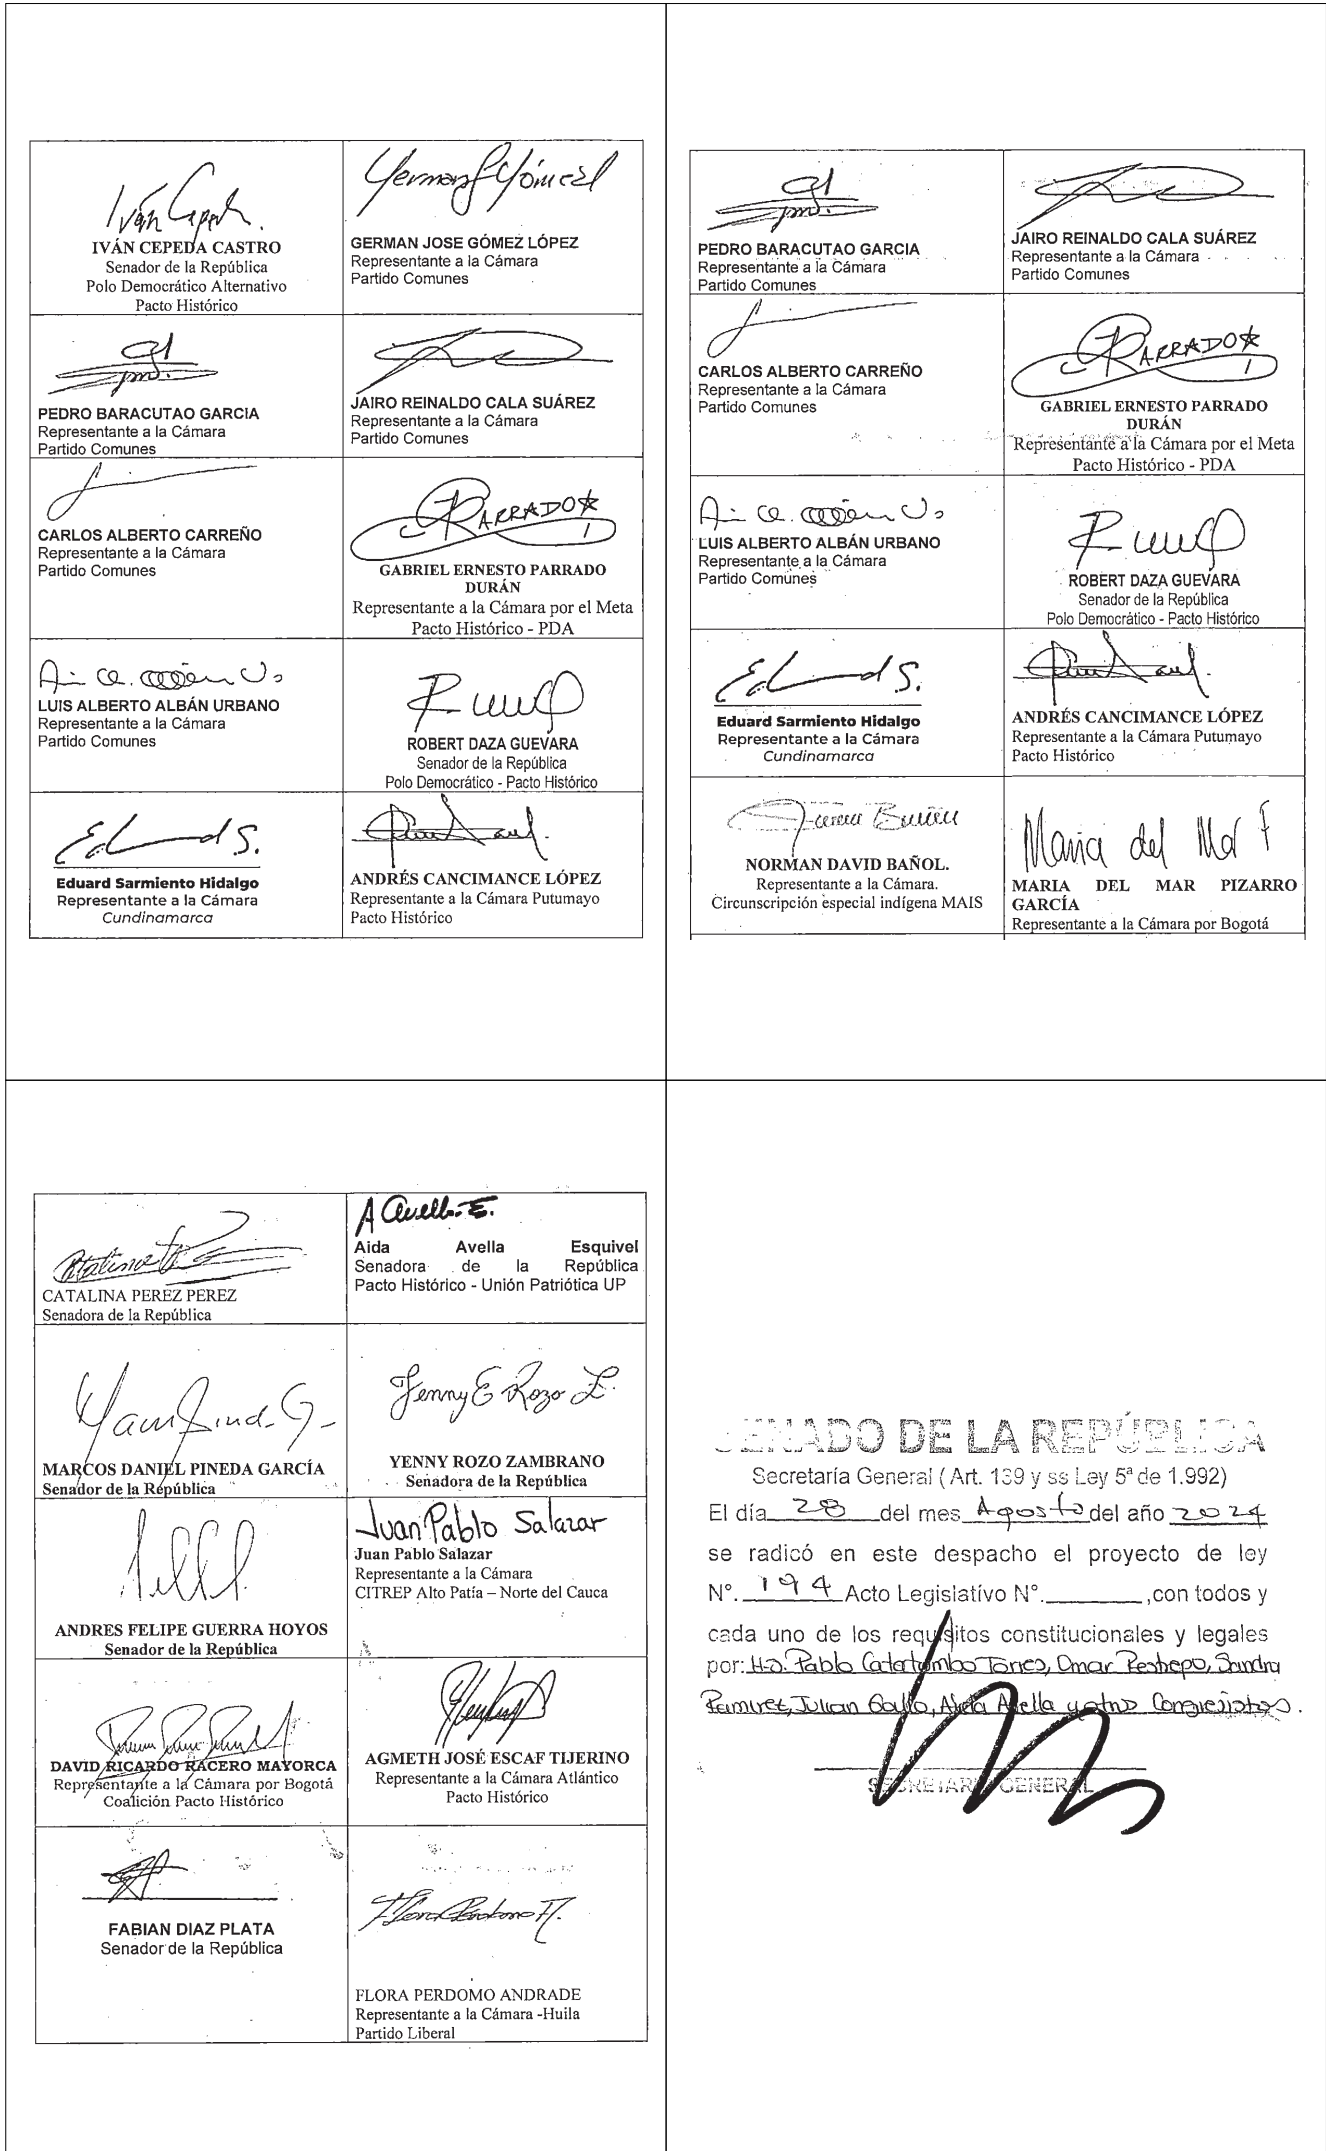 Iván Cepeda.
IVÁN CEPEDA CASTRO
Senador de la República
Polo Democrático Alternativo
Pacto Histórico
GERMAN JOSE GÓMEZ LÓPEZ
Representante a la Cámara
Partido Comunes
PEDRO BARACUTAO GARCIA
Representante a la Cámara
Partido Comunes
JAIRO REINALDO CALA SUÁREZ
Representante a la Cámara
Partido Comunes
CARLOS ALBERTO CARREÑO
Representante a la Cámara
Partido Comunes
PARRADO
GABRIEL ERNESTO PARRADO
DURÁN
Representante a la Cámara por el Meta
Pacto Histórico - PDA
LUIS ALBERTO ALBÁN URBANO
Representante a la Cámara
Partido Comunes
ROBERT DAZA GUEVARA
Senador de la República
Polo Democrático - Pacto Histórico
Eduard S.
Eduard Sarmiento Hidalgo
Representante a la Cámara
Cundinamarca
ANDRÉS CANCIMANCE LÓPEZ
Representante a la Cámara Putumayo
Pacto Histórico
PEDRO BARACUTAO GARCIA
Representante a la Cámara
Partido Comunes
JAIRO REINALDO CALA SUÁREZ
Representante a la Cámara
Partido Comunes
CARLOS ALBERTO CARREÑO
Representante a la Cámara
Partido Comunes
PARRADO
GABRIEL ERNESTO PARRADO
DURÁN
Representante a la Cámara por el Meta
Pacto Histórico - PDA
LUIS ALBERTO ALBÁN URBANO
Representante a la Cámara
Partido Comunes
ROBERT DAZA GUEVARA
Senador de la República
Polo Democrático - Pacto Histórico
Eduard S.
Eduard Sarmiento Hidalgo
Representante a la Cámara
Cundinamarca
ANDRÉS CANCIMANCE LÓPEZ
Representante a la Cámara Putumayo
Pacto Histórico
NORMAN DAVID BAÑOL.
Representante a la Cámara.
Circunscripción especial indígena MAIS
Maria del Mar P
MARIA DEL MAR PIZARRO
GARCÍA
Representante a la Cámara por Bogotá
CATALINA PEREZ PEREZ
Senadora de la República
A Avella E.
Aida Avella Esquivel
Senadora de la República
Pacto Histórico - Unión Patriótica UP
MARCOS DANIEL PINEDA GARCÍA
Senador de la República
Yenny E Rozo Z.
YENNY ROZO ZAMBRANO
Senadora de la República
ANDRES FELIPE GUERRA HOYOS
Senador de la República
Juan Pablo Salazar
Juan Pablo Salazar
Representante a la Cámara
CITREP Alto Patía – Norte del Cauca
DAVID RICARDO RACERO MAYORCA
Representante a la Cámara por Bogotá
Coalición Pacto Histórico
AGMETH JOSÉ ESCAF TIJERINO
Representante a la Cámara Atlántico
Pacto Histórico
FABIAN DIAZ PLATA
Senador de la República
Flora Perdomo A.
FLORA PERDOMO ANDRADE
Representante a la Cámara -Huila
Partido Liberal
SENADO DE LA REPÚBLICA
Secretaría General (Art. 139 y ss Ley 5ª de 1.992)
El día 28 del mes Agosto del año 2024
se radicó en este despacho el proyecto de ley
N°. 194 Acto Legislativo N°. ,con todos y
cada uno de los requisitos constitucionales y legales
por: H.S. Pablo Catatumbo Torres, Omar Restrepo, Sandra
Ramirez, Julian Gallo, Aida Avella y otros Congresistas.
SECRETARIO GENERAL